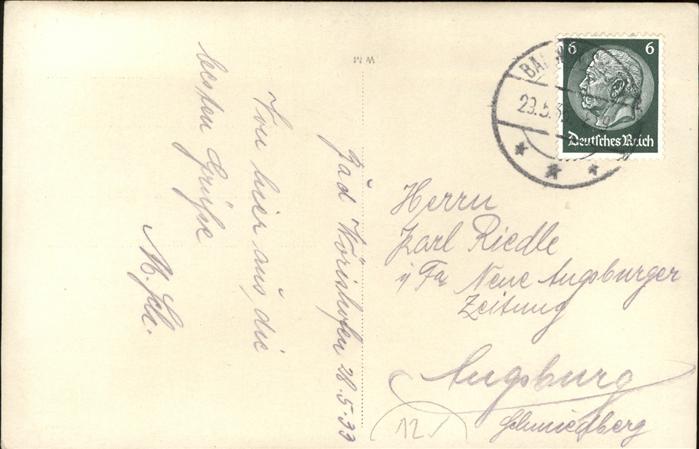 Bad Wörishofen 28.5.33
Von hier aus die
besten Grüße
M. Sch.
W M
6 6
Deutsches Reich
BAD
29.5.33
Herrn
Karl Riedle
i/Fa Neue Augsburger
Zeitung
Augsburg
Schmiedberg
12